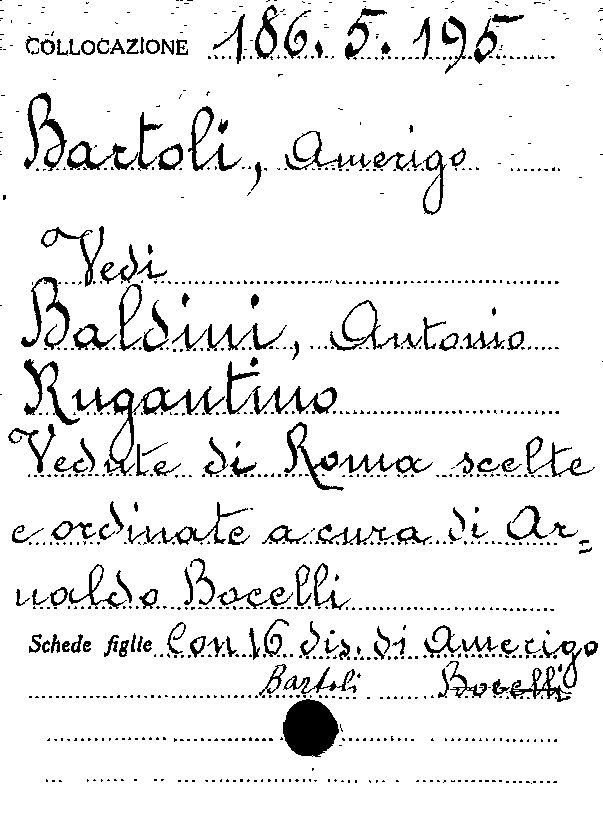 COLLOCAZIONE 186. 5. 195
Bartoli, Amerigo
Vedi
Baldini, Antonio
Rugantino
Vedute di Roma scelte
e ordinate a cura di Ar=
naldo Bocelli
Schede figlie Con 16 dis. di Amerigo
Bartoli Bocelli